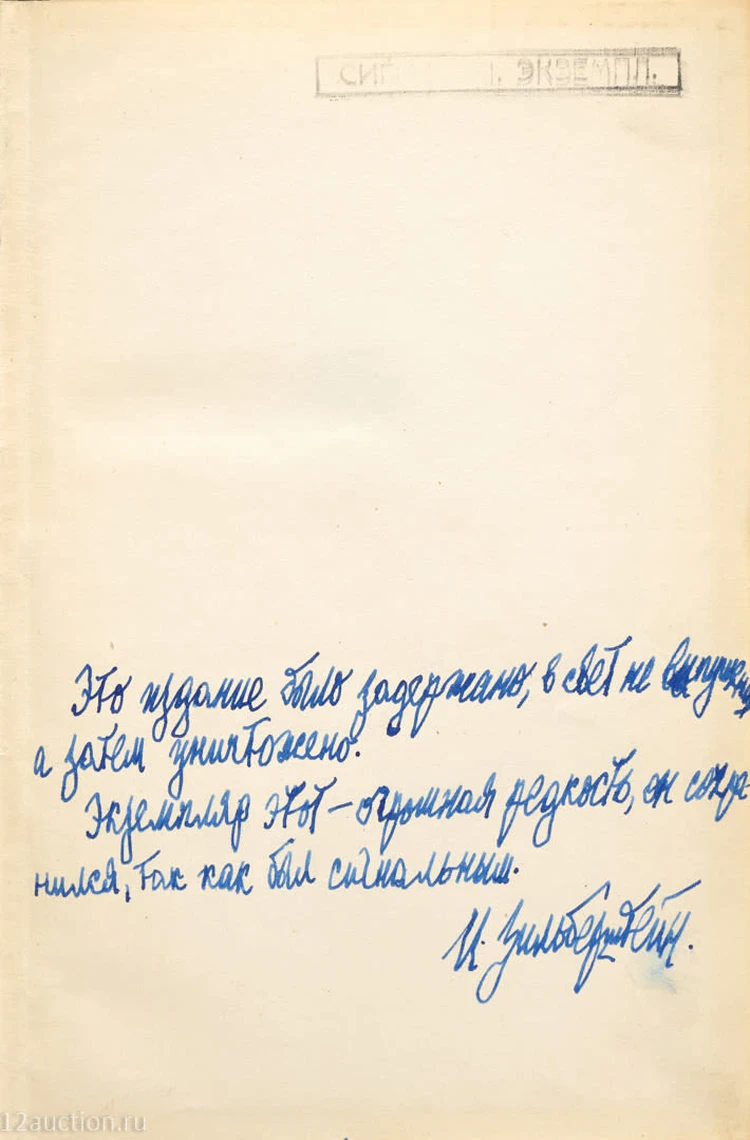 ЭКЗЕМПЛ.
Это издание было задержано, в свет не выпущено,
а затем уничтожено.
Экземпляр этот — огромная редкость, он сохра-
нился, так как был сигнальным.
И. Зильберштейн.
12auction.ru